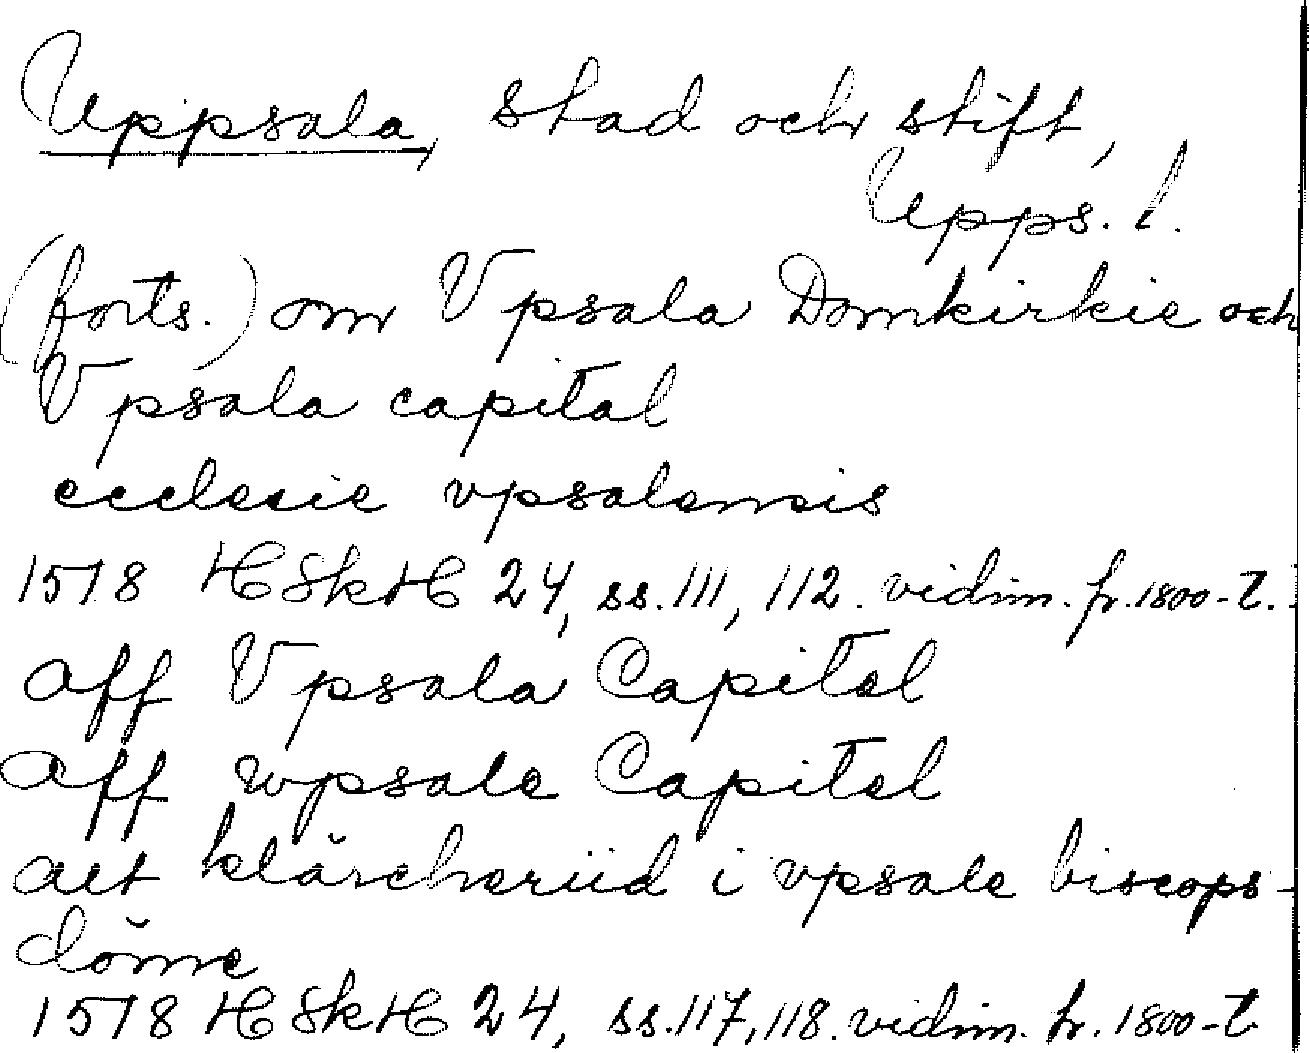 Uppsala, stad och stift,
Upps. l.
(forts.) om Vpsala Domkirkie och
Vpsala capital
ecclesie vpsalensis
1578 HSkH 24, ss. 111, 112. vidim. fr. 1800-t.
aff Vpsala Capitel
aff wpsale Capitel
alt i vpsale biscops-
döme
1578 HSkH 24, ss. 117, 118. vidim. fr. 1800-t